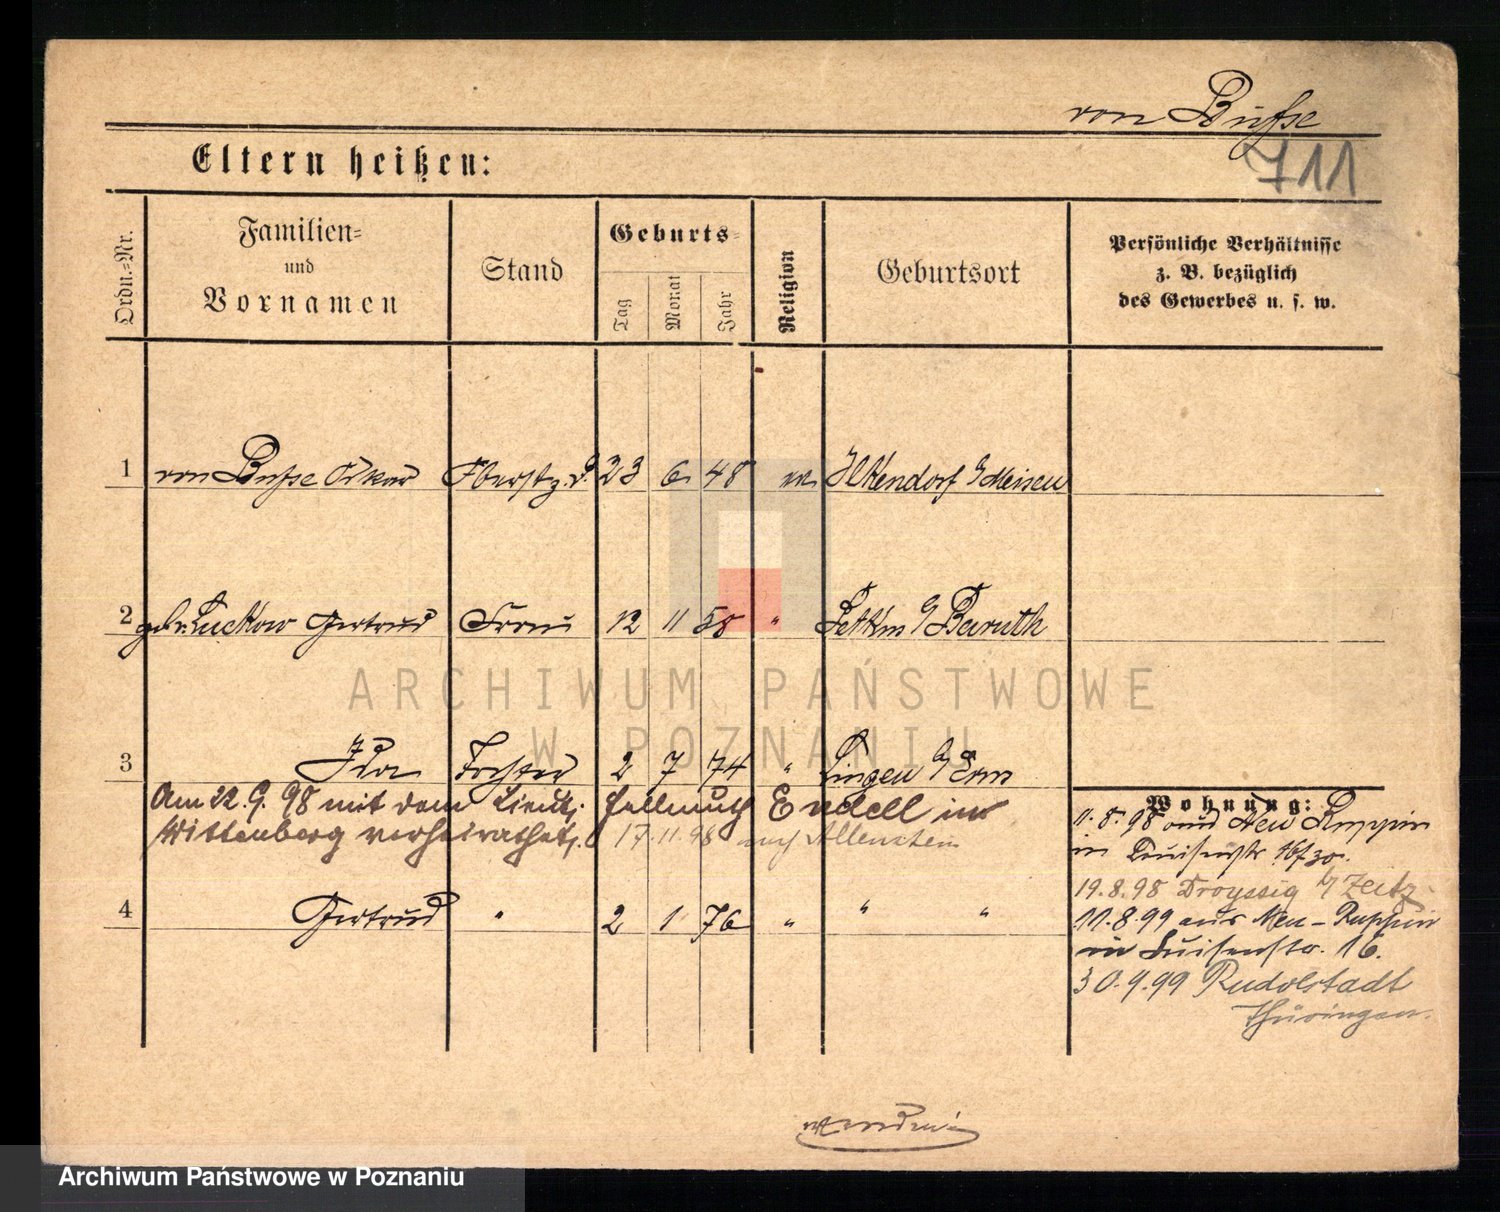 von Busse
711
Eltern heißen:
Ordn.=Nr.
Familien=
und
Vornamen
Stand
Geburts=
Tag
Monat
Jahr
Religion
Geburtsort
Persönliche Verhältnisse
z. B. bezüglich
des Gewerbes u. s. w.
1 von Busse Oskar Oberst z. D. 23 6 48 ev
2 geb. Luckow Gertrud Frau 12 11 58 " Petkus b/ Baruth
3 Ida Tochter 2 7 74 " Lingen b/ Ems
Am 22.9.98 mit dem Lieut. Hellmuth Endell in
Wittenberg verheirathet. 17.11.98 nach Allenstein
4 Gertrud " 2 1 76 " " "
Wohnung:
11.8.98 aus Neu Ruppin
in Louisenstr. 16
19.8.98 Droyssig b/ Zeitz
11.8.99 aus Neu-Ruppin
in Luisenstr. 16.
30.9.99 Rudolstadt
Thüringen.
ARCHIWUM PAŃSTWOWE
W POZNANIU
Archiwum Państwowe w Poznaniu